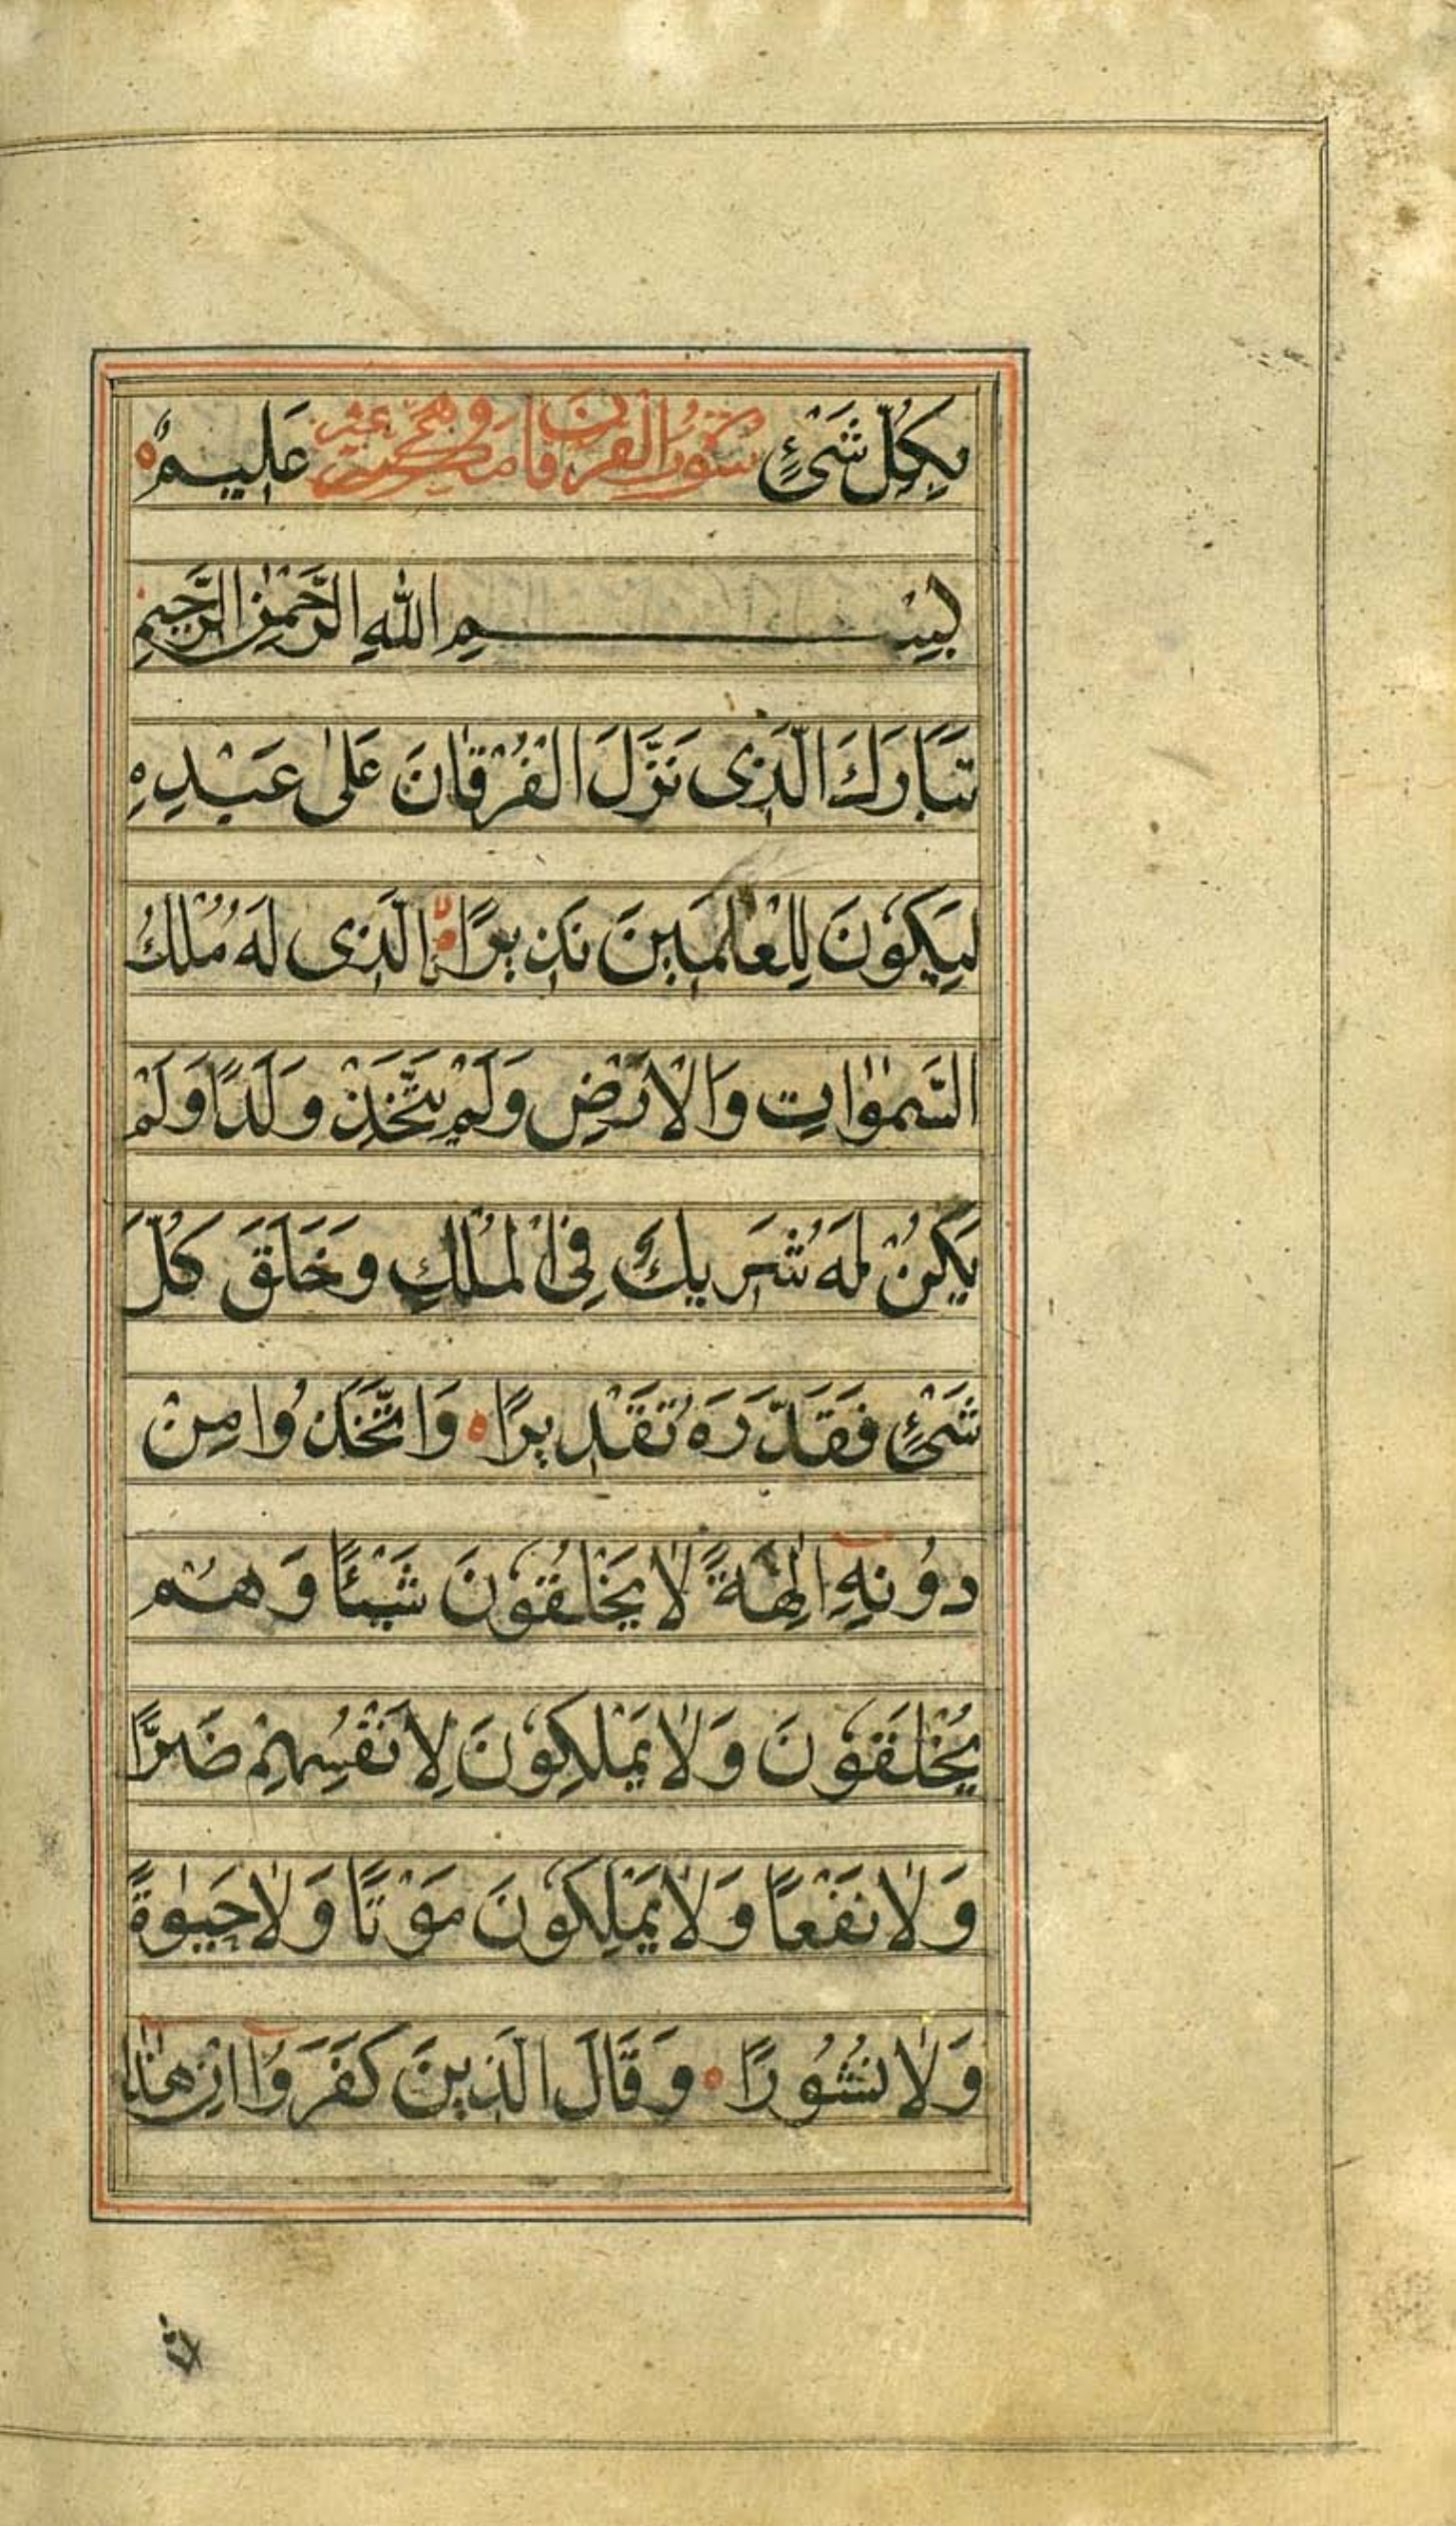 بِكُلِّ شَىْءٍ سورة الفرقان عَلِيمٌ
بِسْمِ اللّٰهِ الرَّحْمٰنِ الرَّحِيمِ
تَبَارَكَ الَّذِى نَزَّلَ الْفُرْقَانَ عَلٰى عَبْدِهِ
لِيَكُوْنَ لِلْعٰالَمِيْنَ نَذِيْرًا الَّذِى لَهُ مُلْكُ
السَّمٰوٰاتِ وَالْاَرْضِ وَلَمْ يَتَّخِذْ وَلَدًا وَلَمْ
يَكُنْ لَهُ شَرِيكٌ فِى الْمُلْكِ وَخَلَقَ كُلَّ
شَىْءٍ فَقَدَّرَهُ تَقْدِيرًا وَاتَّخَذُوا مِنْ
دُونِهِٓ اٰلِهَةً لٰا يَخْلُقُوْنَ شَيْئًا وَهُمْ
يُخْلَقُوْنَ وَلٰا يَمْلِكُوْنَ لِاَنْفُسِهِمْ ضَرًّا
وَلٰا نَفْعًا وَلٰا يَمْلِكُوْنَ مَوْتًا وَلٰا حَيٰوةً
وَلٰا نُشُوْرًا وَقَالَ الَّذِينَ كَفَرُوٓا اِنْ هٰذٰٓا